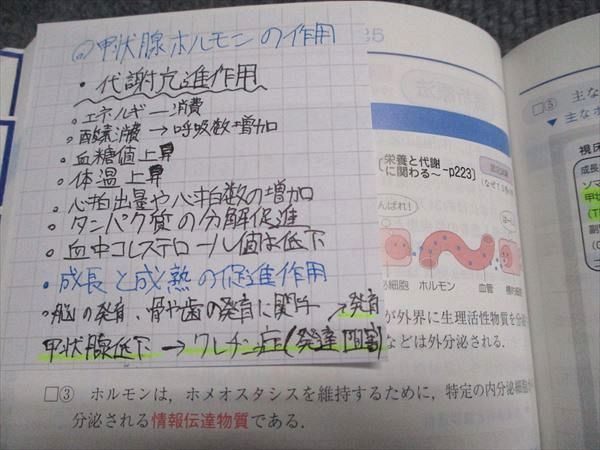 ◎甲状腺ホルモンの作用
・代謝亢進作用
・エネルギー消費
・酸素消費→呼吸数増加
・血糖値上昇
・体温上昇
・心拍出量や心拍数の増加
・タンパク質の分解促進
・血中コレステロール値は低下
・成長と成熟の促進作用
・脳の発育、骨や歯の発育に関与
→発育
甲状腺低下→クレチン症(発達阻害)
栄養と代謝
に関わる〜-p223
んばれ!
細胞
ホルモン
血管
が外界に生理活性物質を分
などは外分泌される.
□③ ホルモンは，ホメオスタシスを維持するために，特定の内分泌細胞
分泌される情報伝達物質である.
□⑤ 主な
▼ 主なホ
視床
成長
ソマ
甲状
(T
副